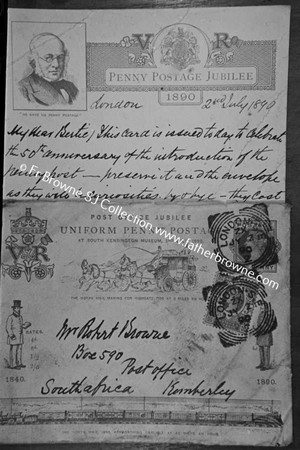 V R
PENNY POSTAGE JUBILEE
1890
London 2nd July 1890
My dear Bertie, This card is issued to day to celebrate
the 50th anniversary of the introduction of the
penny post — preserve it and the envelope
as they will be curiosities by & bye — they cost
POST OFFICE JUBILEE
UNIFORM PENNY POSTAGE
AT SOUTH KENSINGTON MUSEUM,
V R
Mr Robert Browne
Box 590
Post office
South africa Kimberley
1840. 1890.
© Fr Browne S J Collection. www.fatherbrowne.com